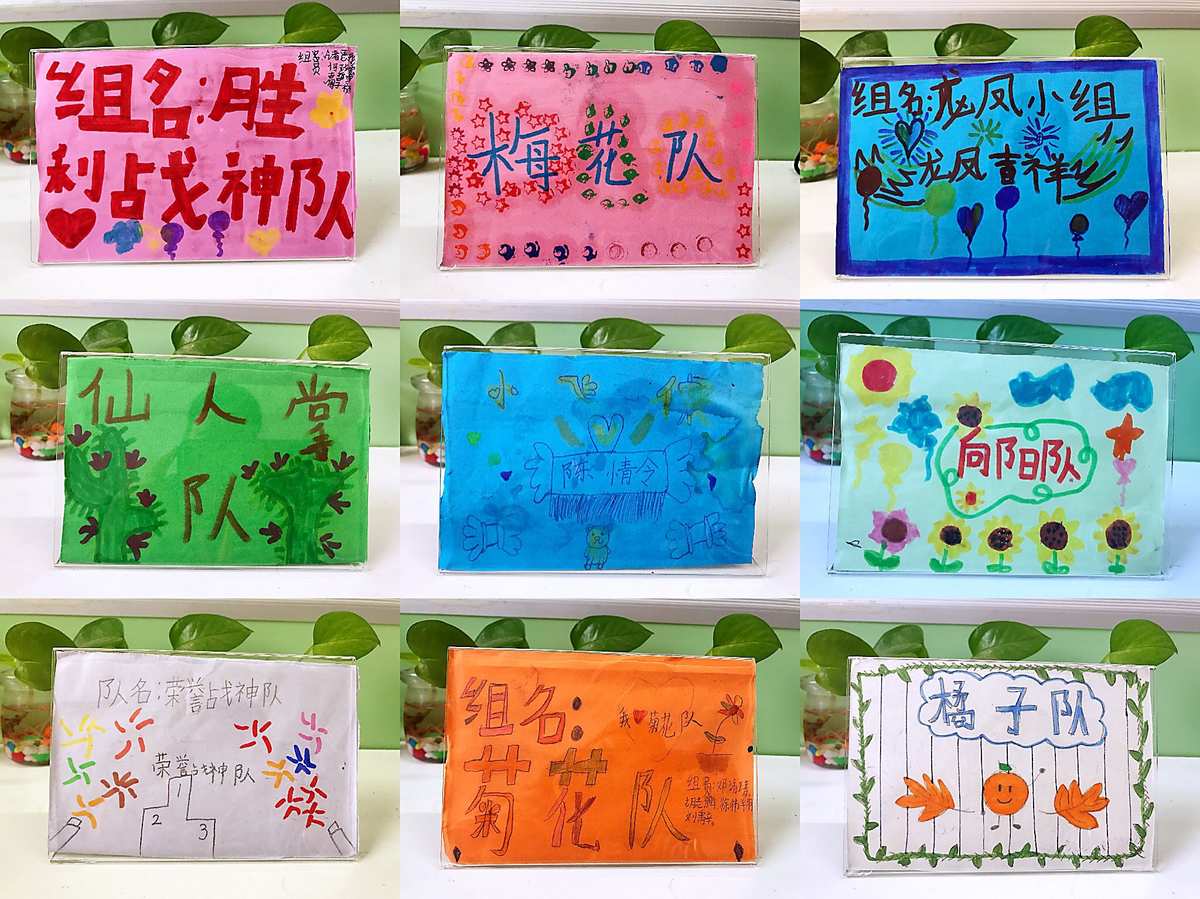 组名:胜
利占战神队
组员
梅花队
组名:龙凤小组
龙凤吉祥
仙人掌
队
小飞侠
陈情令
向阳队
队名:荣誉战神队
荣誉战神队
1
2
3
组名:
我❤菊花队
菊花队
组员:
橘子队